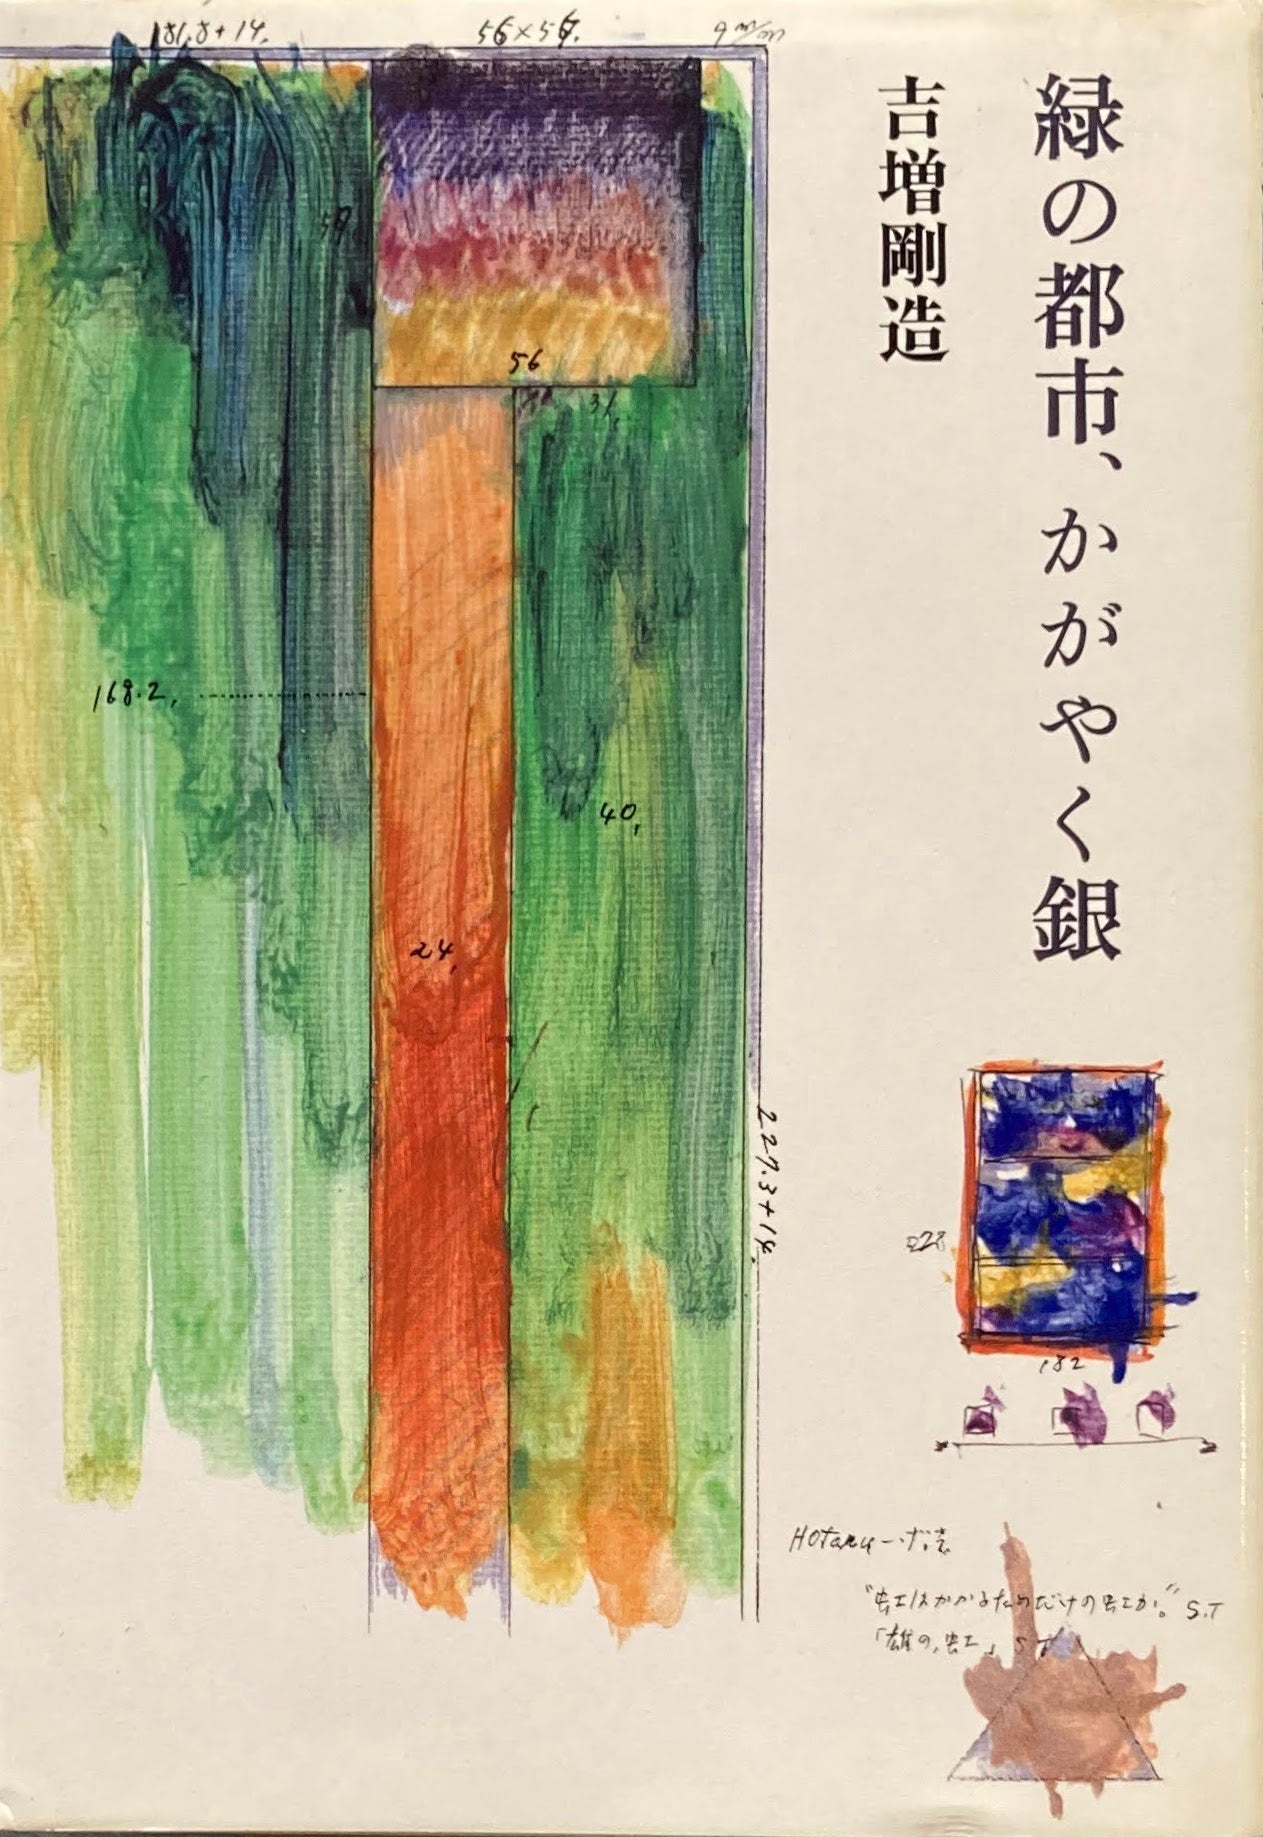 緑の都市、かがやく銀
吉増剛造
181.8+14.
56×56.
9 m/m
56
31,
168.2,
40,
24,
227.3+14.
228
182
"虹はかかるためだけの虹か。" S.T
「雄の、虹」 S T